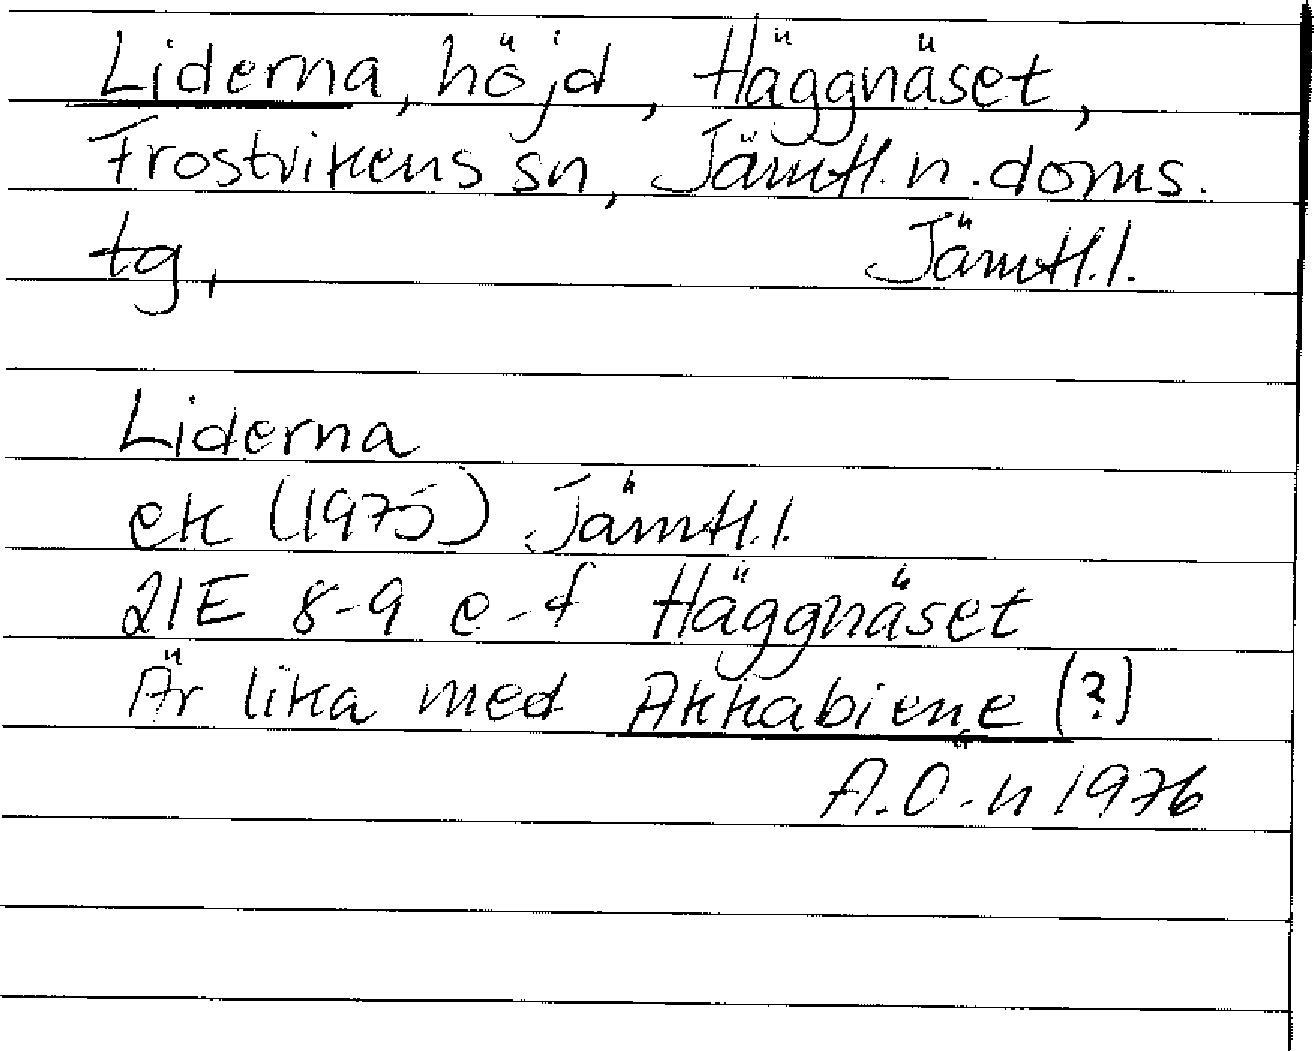 Liderna, höjd, Häggnäset,
Frostvikens sn, Jämtl. n. doms.
tg, Jämtl. l.
Liderna
ek (1975) Jämtl. l.
21E 8-9 e-f Häggnäset
Är lika med Akkabiene (?)
A.Ö-n 1976